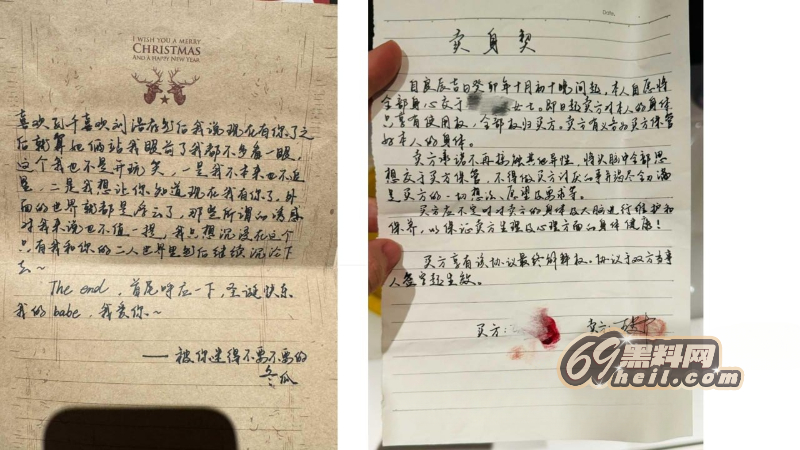 I WISH YOU A MERRY
CHRISTMAS
AND A HAPPY NEW YEAR
喜欢瓦千喜欢刘浩存然后我说现在有你了之
后就算她俩站我眼前了我都不多看一眼,
这个我也不是开玩笑,一是我本来也不追
星,二是我想让你知道现在我有你了,外
面的世界就都是浮云了,那些所谓的诱惑
对我来说也不值一提,我只想沉浸在这个
只有我和你的二人世界里然后继续沉沦下
去~
The end,首尾呼应一下,圣诞快乐
我的babe,我爱你~
——被你迷得不要不要的
冬瓜
Date.
卖身契
自良辰吉日癸卯年十月初十晚间起,本人自愿将
全部身心交于 女士。即日起卖方对本人的身体
只享有使用权,全部权归买方。卖方有义务为买方保管
好本人的身体。
卖方承诺不再接触其他异性,将大脑中全部思
想交于买方保管,不得做买方讨厌的事并竭尽全力满
足买方的一切想法、愿望及要求等。
买方应不定时对卖方的身体及大脑进行维护和
保养,以保证卖方生理及心理方面的身体健康!
买方享有该协议最终解释权。协议于双方当事
人签字起生效。
买方: 卖方:
69黑料网
69heil.com